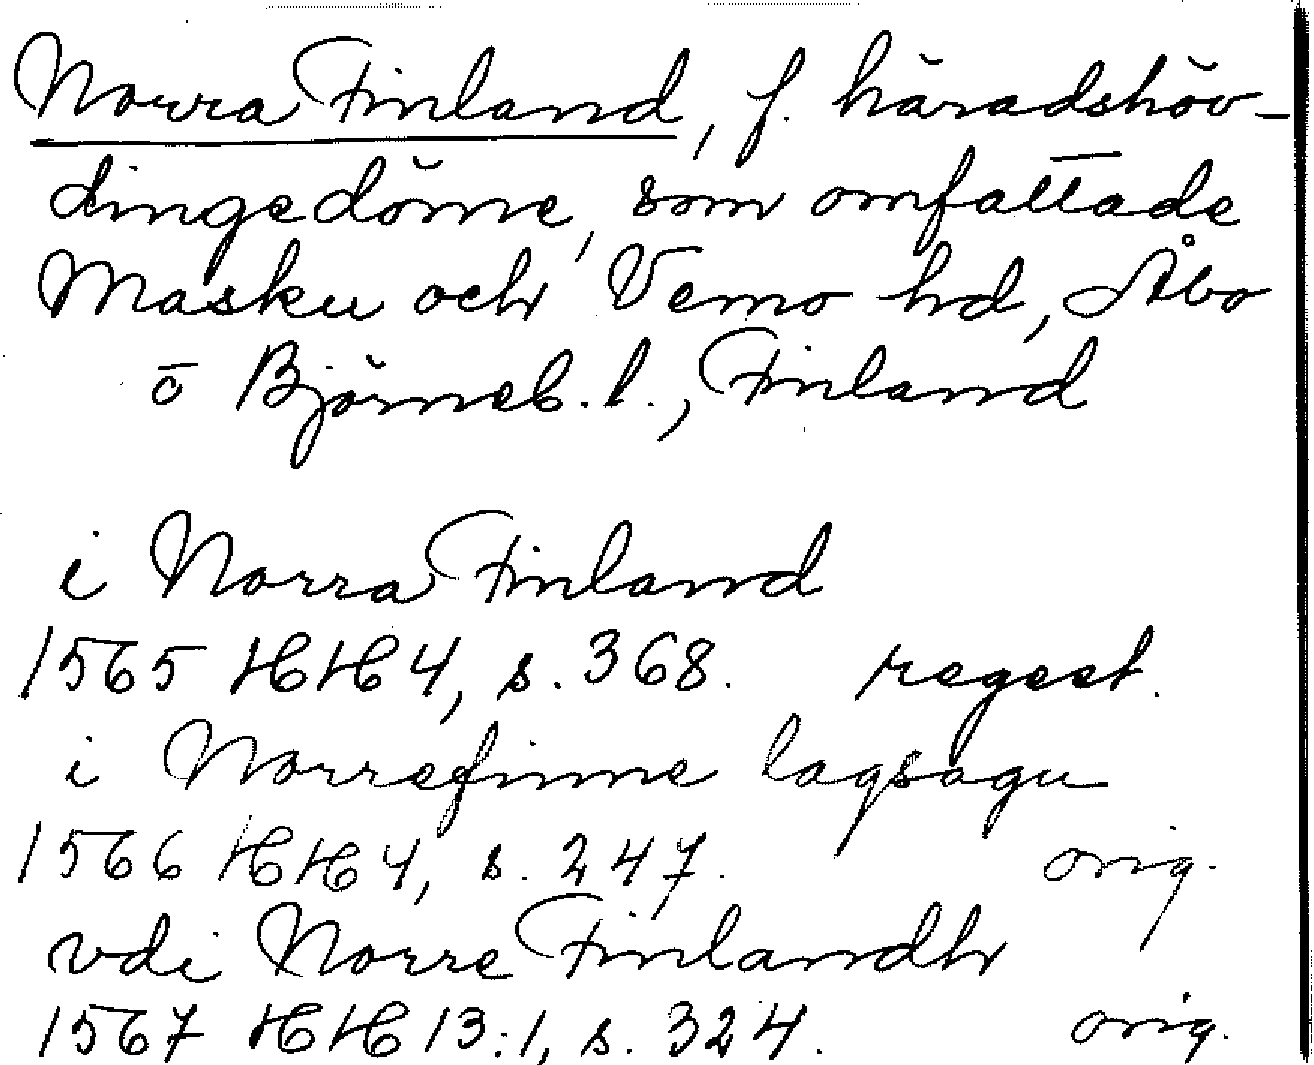 Norra Finland, f. häradshöv-
dingedöme, som omfattade
Masku och Vemo hd, Åbo
o Björneb. l., Finland
i Norra Finland
1565 HH 4, s. 368. regest.
i Norrefinne lagsagu
1566 HH 4, s. 247. orig.
vdi Norre Finlandh
1567 HH 13:1, s. 324. orig.